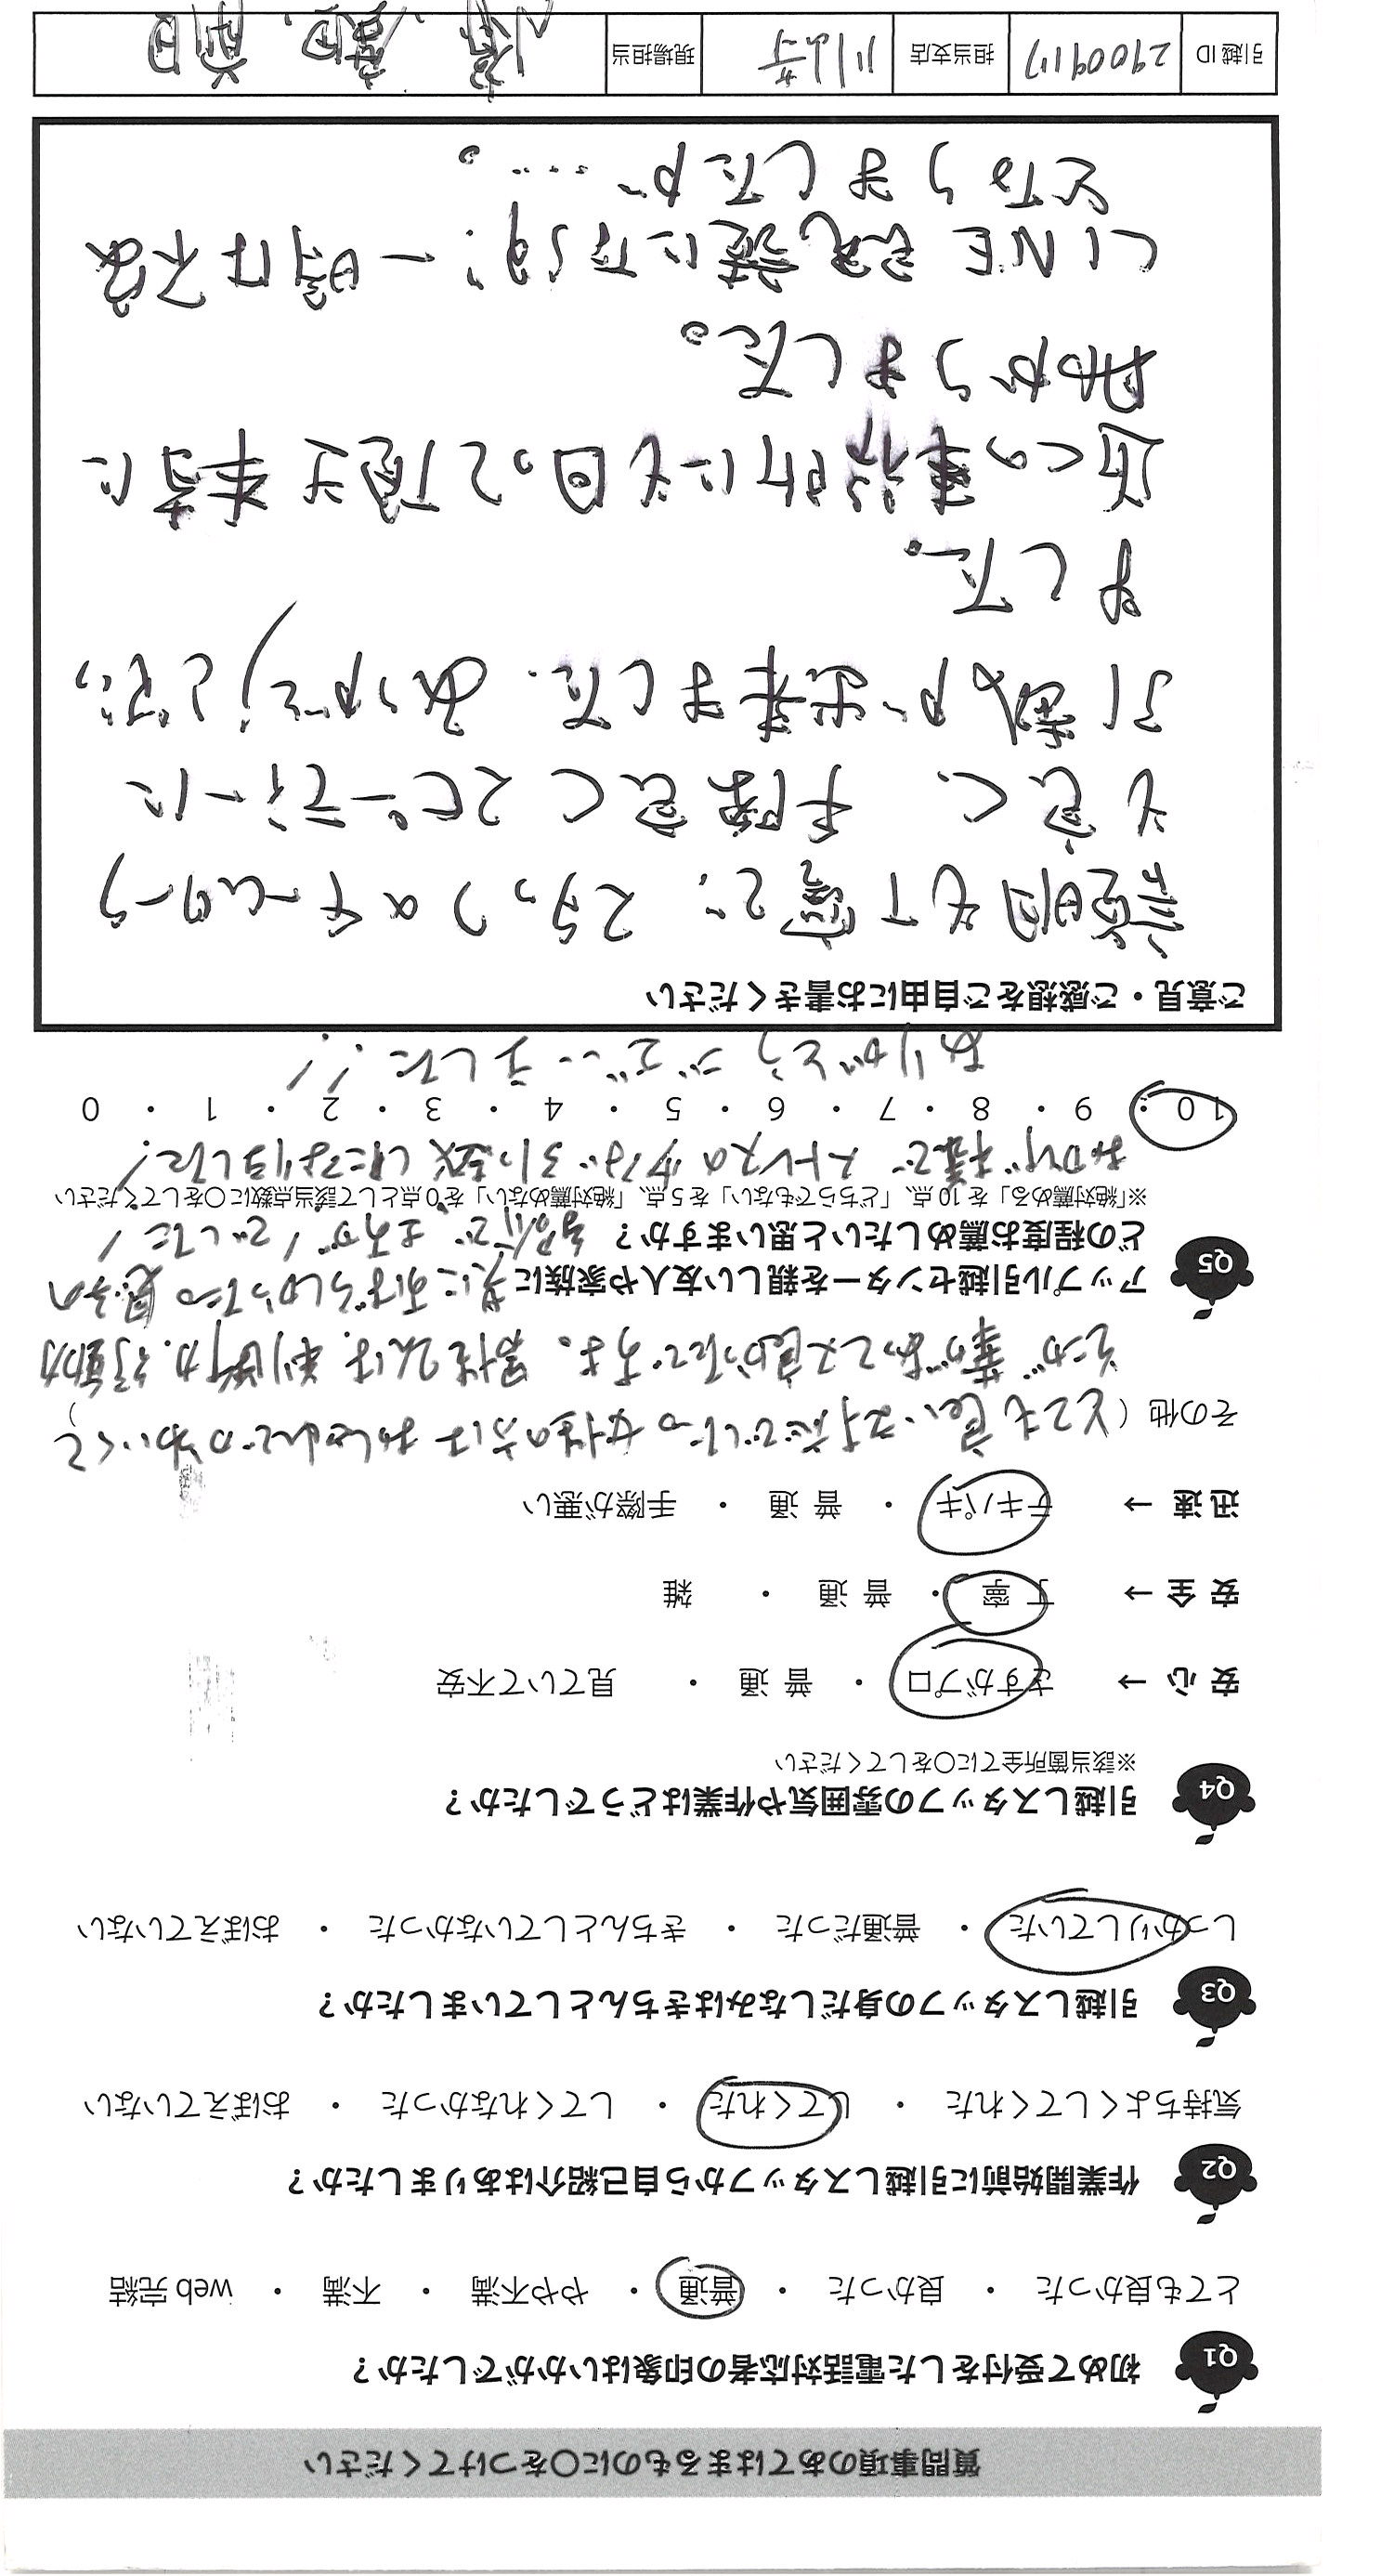 質問事項のあてはまるものに○をつけてください
Q1 初めて受付をした電話対応者の印象はいかがでしたか？
とても良かった ・ 良かった ・ 普通 ・ やや不満 ・ 不満 ・ web 完結
Q2 作業開始前に引越しスタッフから自己紹介はありましたか？
気持ちよくしてくれた ・ してくれた ・ してくれなかった ・ おぼえていない
Q3 引越しスタッフの身だしなみはきちんとしていましたか？
しっかりしていた ・ 普通だった ・ きちんとしていなかった ・ おぼえていない
Q4 引越しスタッフの雰囲気や作業はどうでしたか？
※該当箇所全てに○をしてください
安心 → さすがプロ ・ 普通 ・ 見ていて不安
安全 → 丁寧 ・ 普通 ・ 雑
迅速 → テキパキ ・ 普通 ・ 手際が悪い
その他（とても良い対応でした。女性の方は
男性2人は、判断力、行動力
共にすばらしかった。息子の
Q5 アップル引越センターを親しい友人や家族に
どの程度お薦めしたいと思いますか？
※「絶対薦める」を 10 点、「どちらでもない」を 5 点、「絶対薦めない」を 0 点として該当点数に○をしてください
おかげ様で ストレスの少ない引越しになりました！
10 ・ 9 ・ 8 ・ 7 ・ 6 ・ 5 ・ 4 ・ 3 ・ 2 ・ 1 ・ 0
ありがとうございました！！
ご意見・ご感想をご自由にお書きください
説明も丁寧で、スタッフのチームワーク
も良く、手際良くスピーディーに
引越が出来ました。ありがとうござい
ました。
近くの事務所にも回って頂き本当に
助かりました。
LINE 登録になり、一時は不安
となりましたが……。
引越 ID 2900917 担当支店 川崎 現場担当